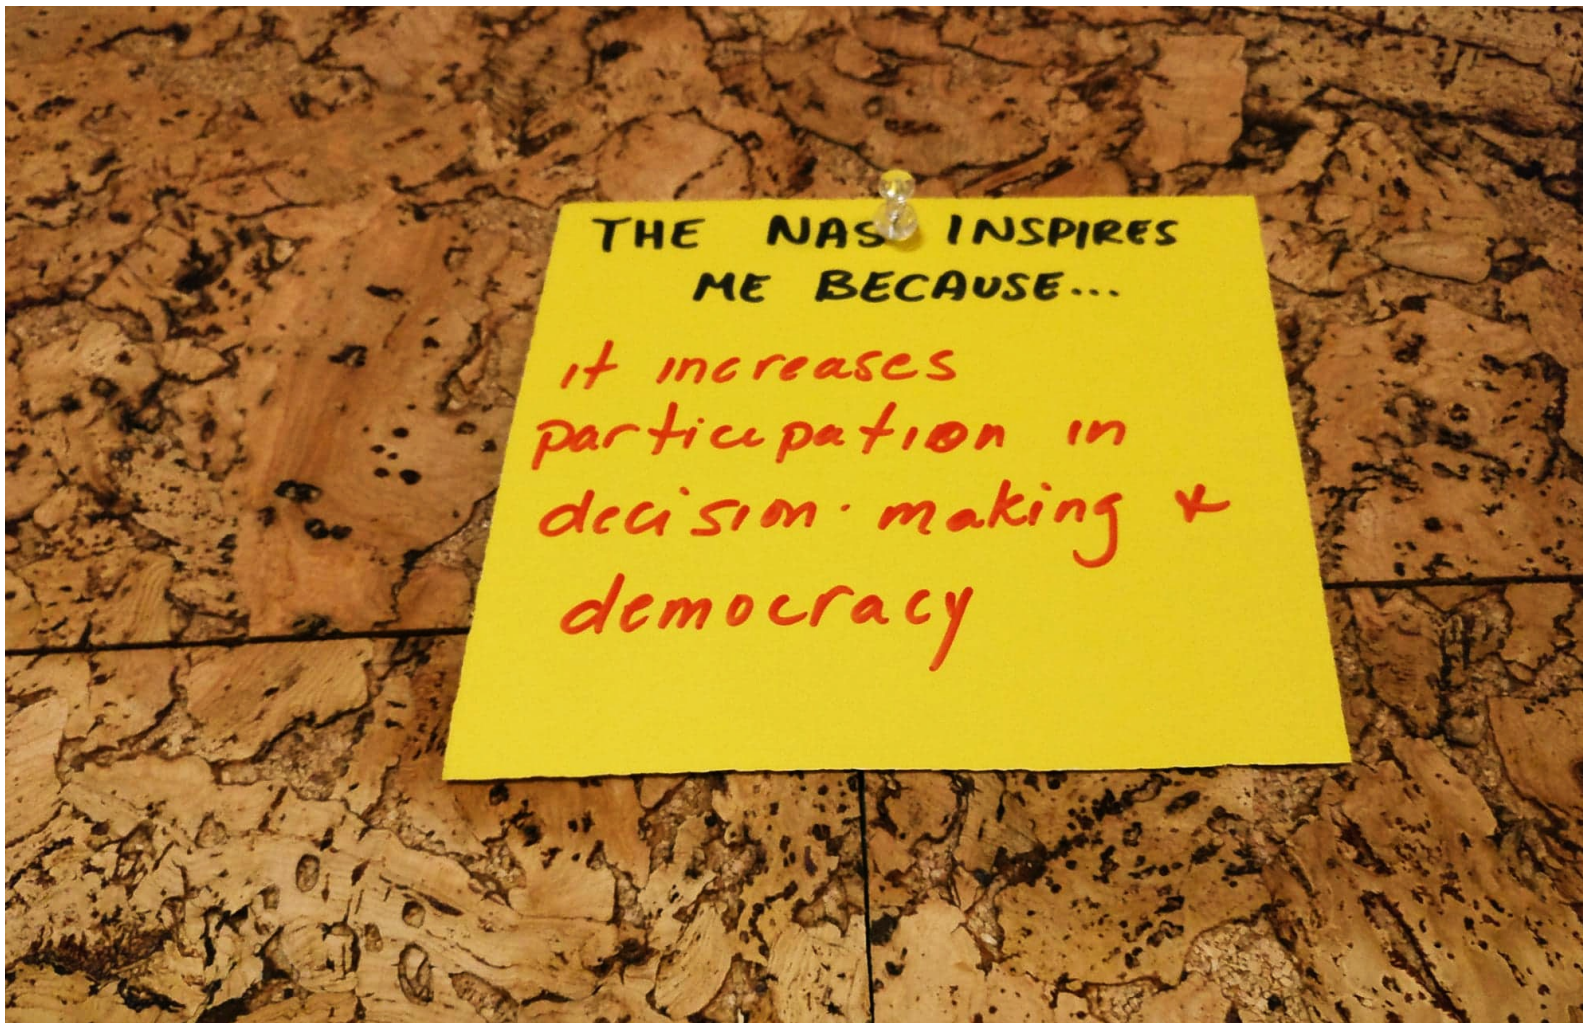 THE NAS INSPIRES
ME BECAUSE...
it increases
participation in
decision-making &
democracy